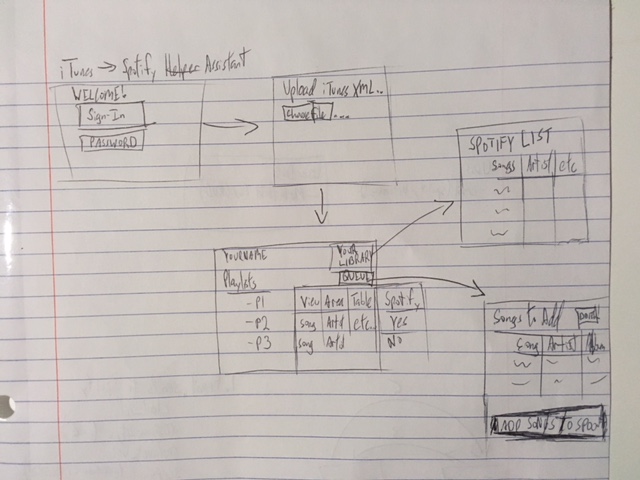 iTunes → Spotify Helper Assistant
WELCOME!
Sign-In
PASSWORD
Upload iTunes XML..
Choose file ...
SPOTIFY LIST
Songs Artist etc
YOURNAME
YOUR LIBRARY
QUEUE
Playlists
-P1
-P2
-P3
View Area Table Spotify
song Artist etc.. Yes
song Artist No
Songs to Add
Song Artist Album
ADD SONGS TO SPOTIFY